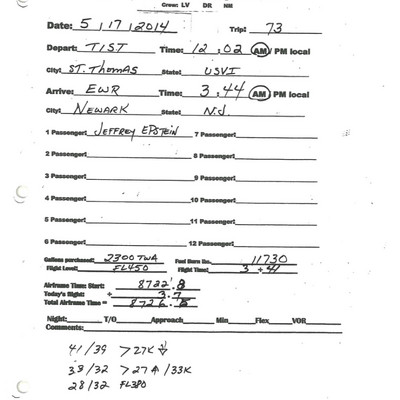 Crew: LV DR NM
Date: 5, 17, 2014 Trip: 73
Depart: TIST Time: 12:02 AM / PM local
City: ST. THOMAS State: USVI
Arrive: EWR Time: 3:44 AM / PM local
City: NEWARK State: N.J.
1 Passenger: JEFFREY EPSTEIN 7 Passenger:
2 Passenger: 8 Passenger:
3 Passenger: 9 Passenger:
4 Passenger: 10 Passenger:
5 Passenger: 11 Passenger:
6 Passenger: 12 Passenger:
Gallons purchased: 2300 TWA Fuel Burn lbs. 11730
Flight Level: FL450 Flight Time: 3 + 41
Airframe Time: Start: 8722.8
Today's flight: + 3.7
Total Airframe Time = 8726.5
Night: T/O Approach Min Flex VOR
Comments:
41/39 >27K
38/32 >27↑/33K
28/32 FL380